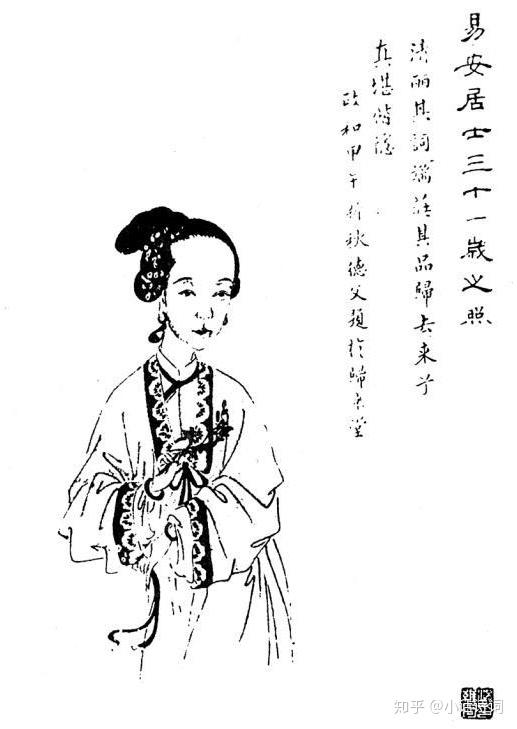 易安居士三十一歲之照
清麗其詞端莊其品歸去來兮
真堪偕隱
政和甲午新秋德父題於歸來堂
知乎 @小啥诗词